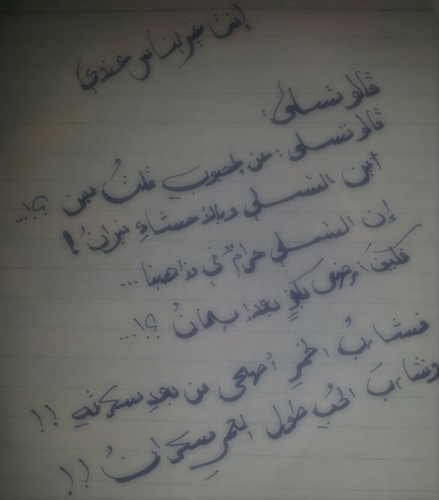 إنت خير الناس عندي
قالو تسلى:
قالو تسلى: عن المحبوب قلتُ بمن ؟!...
أين التسلي وبالأحشاءِ نيرانُ !
إن التسلي حرامٌ في مذاهبنا...
فكيفَ أرضى بكفرٍ بعدَ إيمانُ ؟!...
فشاربُ الخمرِ أصحى من بعدِ سكرتهِ !!
وشاربَ الحُبِ طول العمرِ سكرانُ !!